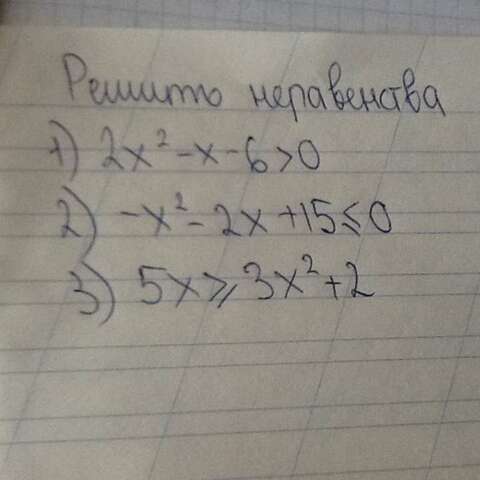 Решить неравенства
1) 2x² - x - 6 > 0
2) -x² - 2x + 15 ≤ 0
3) 5x ⩾ 3x² + 2